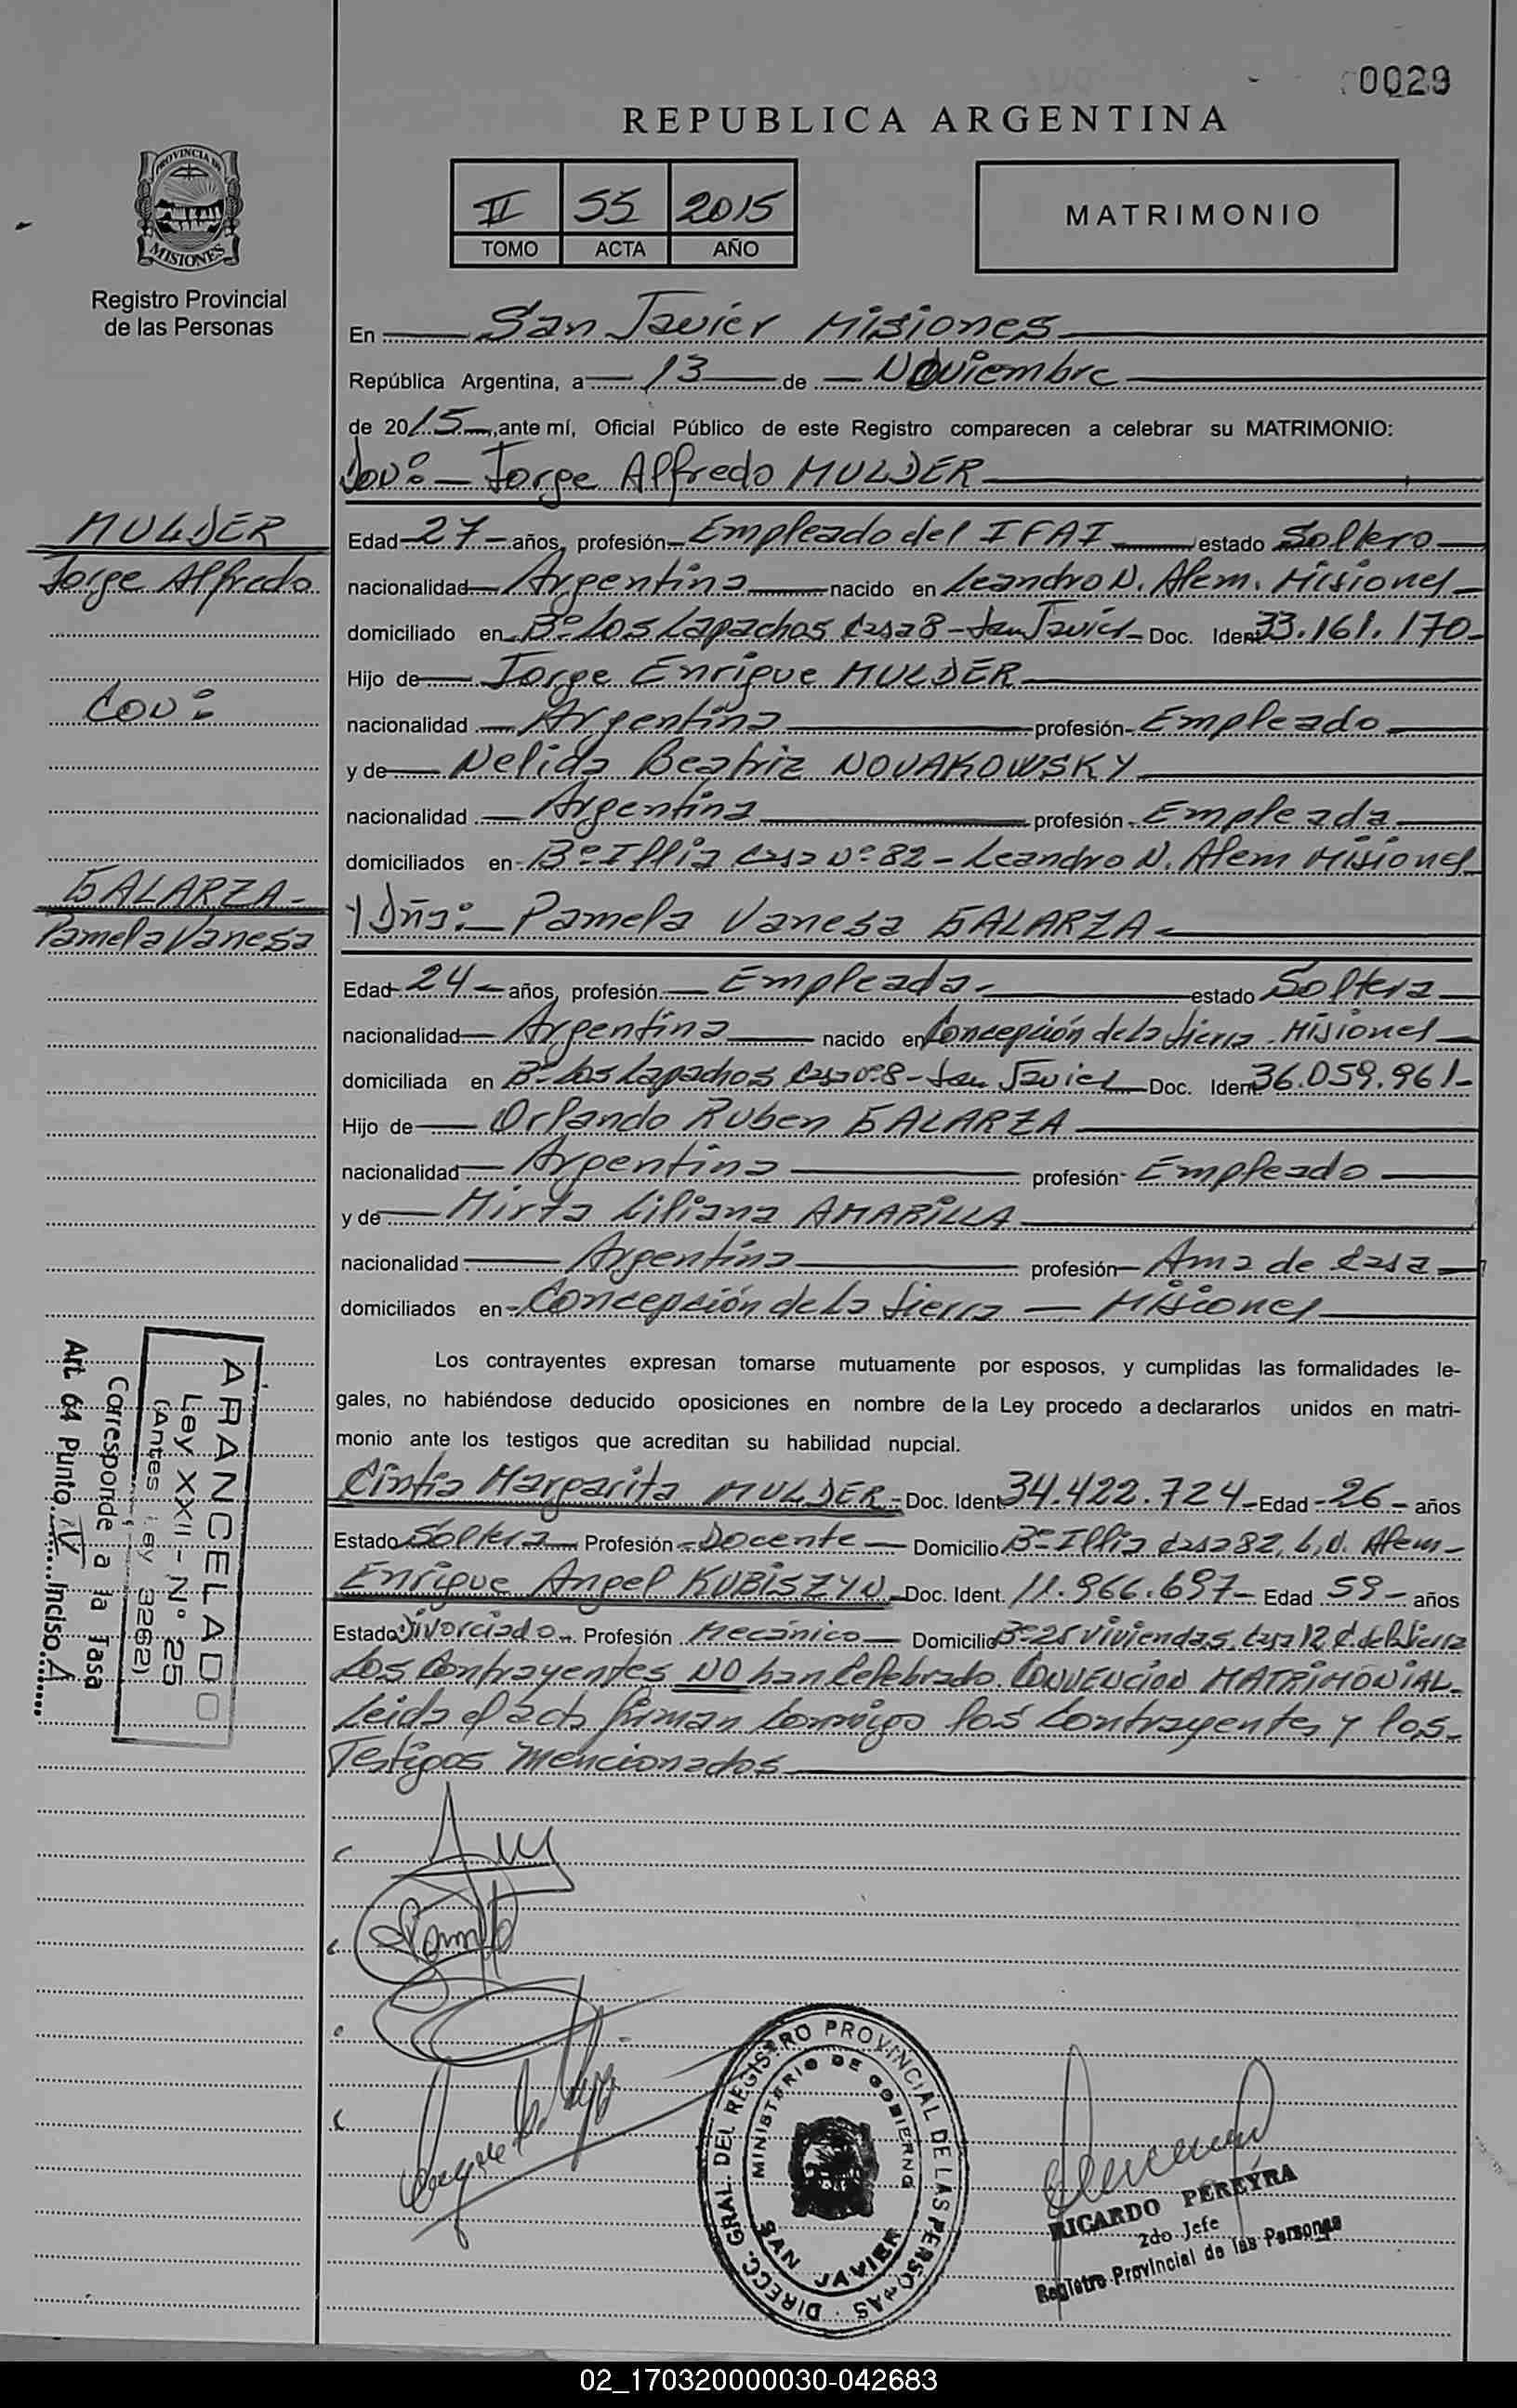 0029
REPUBLICA ARGENTINA
PROVINCIA DE
MISIONES
Registro Provincial
de las Personas
II 55 2015
TOMO ACTA AÑO
MATRIMONIO
En San Javier Misiones
República Argentina, a 13 de Noviembre
de 2015, ante mí, Oficial Público de este Registro comparecen a celebrar su MATRIMONIO:
Don: Jorge Alfredo MULDER
MULDER
Jorge Alfredo
Con:
GALARZA
Pamela Vanesa
Edad 27 años, profesión Empleado del IFAI estado Soltero
nacionalidad Argentina nacido en Leandro N. Alem. Misiones
domiciliado en Bº Los Lapachos Casa 8 - San Javier Doc. Ident 33.161.170
Hijo de Jorge Enrique MULDER
nacionalidad Argentina profesión Empleado
y de Nelida Beatriz NOVAKOWSKY
nacionalidad Argentina profesión Empleada
domiciliados en Bº Illia Casa Nº 82 - Leandro N. Alem Misiones
Y Dña: Pamela Vanesa GALARZA
Edad 24 años, profesión Empleada estado Soltera
nacionalidad Argentina nacido en Concepción de la Sierra. Misiones
domiciliada en Bº Los Lapachos Casa nº 8 - San Javier Doc. Ident 36.059.961
Hijo de Orlando Ruben GALARZA
nacionalidad Argentina profesión Empleado
y de Mirta Liliana AMARILLA
nacionalidad Argentina profesión Ama de Casa
domiciliados en Concepción de La Sierra - Misiones
Los contrayentes expresan tomarse mutuamente por esposos, y cumplidas las formalidades le-
gales, no habiéndose deducido oposiciones en nombre de la Ley procedo a declararlos unidos en matri-
monio ante los testigos que acreditan su habilidad nupcial.
Cintia Margarita MULDER Doc. Ident 34.422.724 Edad 26 años
Estado Soltera Profesión Docente Domicilio Bº Illia Casa 82, L.N. Alem
Enrique Angel KUBISZYN Doc. Ident. 11.966.697 Edad 59 años
Estado Divorciado Profesión Mecánico Domicilio Bº 25 Viviendas Casa 12 C. de la Sierra
Los Contrayentes NO han Celebrado CONVENCION MATRIMONIAL.
Leida el acta firman Conmigo los Contrayentes y los
Testigos Mencionados
ARANCELADO
Ley XXII - Nº 25
(Antes Ley 3262)
Corresponde a la Tasa
Art 64 Punto IV Inciso A
DIRECC. GRAL. DEL REGISTRO PROVINCIAL DE LAS PERSONAS
MINISTERIO DE GOBIERNO
SAN JAVIER
RICARDO PEREYRA
2do Jefe
Registro Provincial de las Personas
02_170320000030-042683